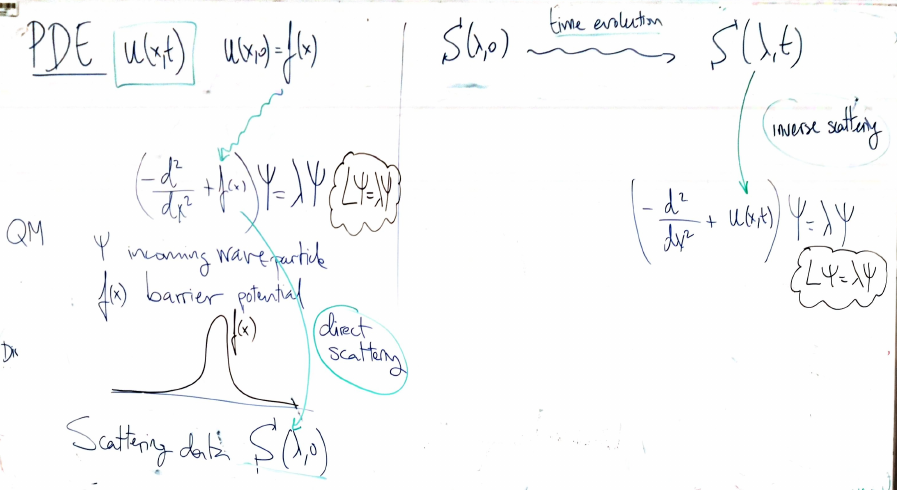 PDE u(x,t) u(x,0)=f(x)
(-d²/dx² + f(x))Ψ=λΨ LΨ=λΨ
QM
Ψ incoming wave particle
f(x) barrier potential
f(x)
direct
scattering
Scattering data S(λ,0)
S(λ,0) time evolution S(λ,t)
inverse scattering
(-d²/dx² + u(x,t))Ψ=λΨ
LΨ=λΨ